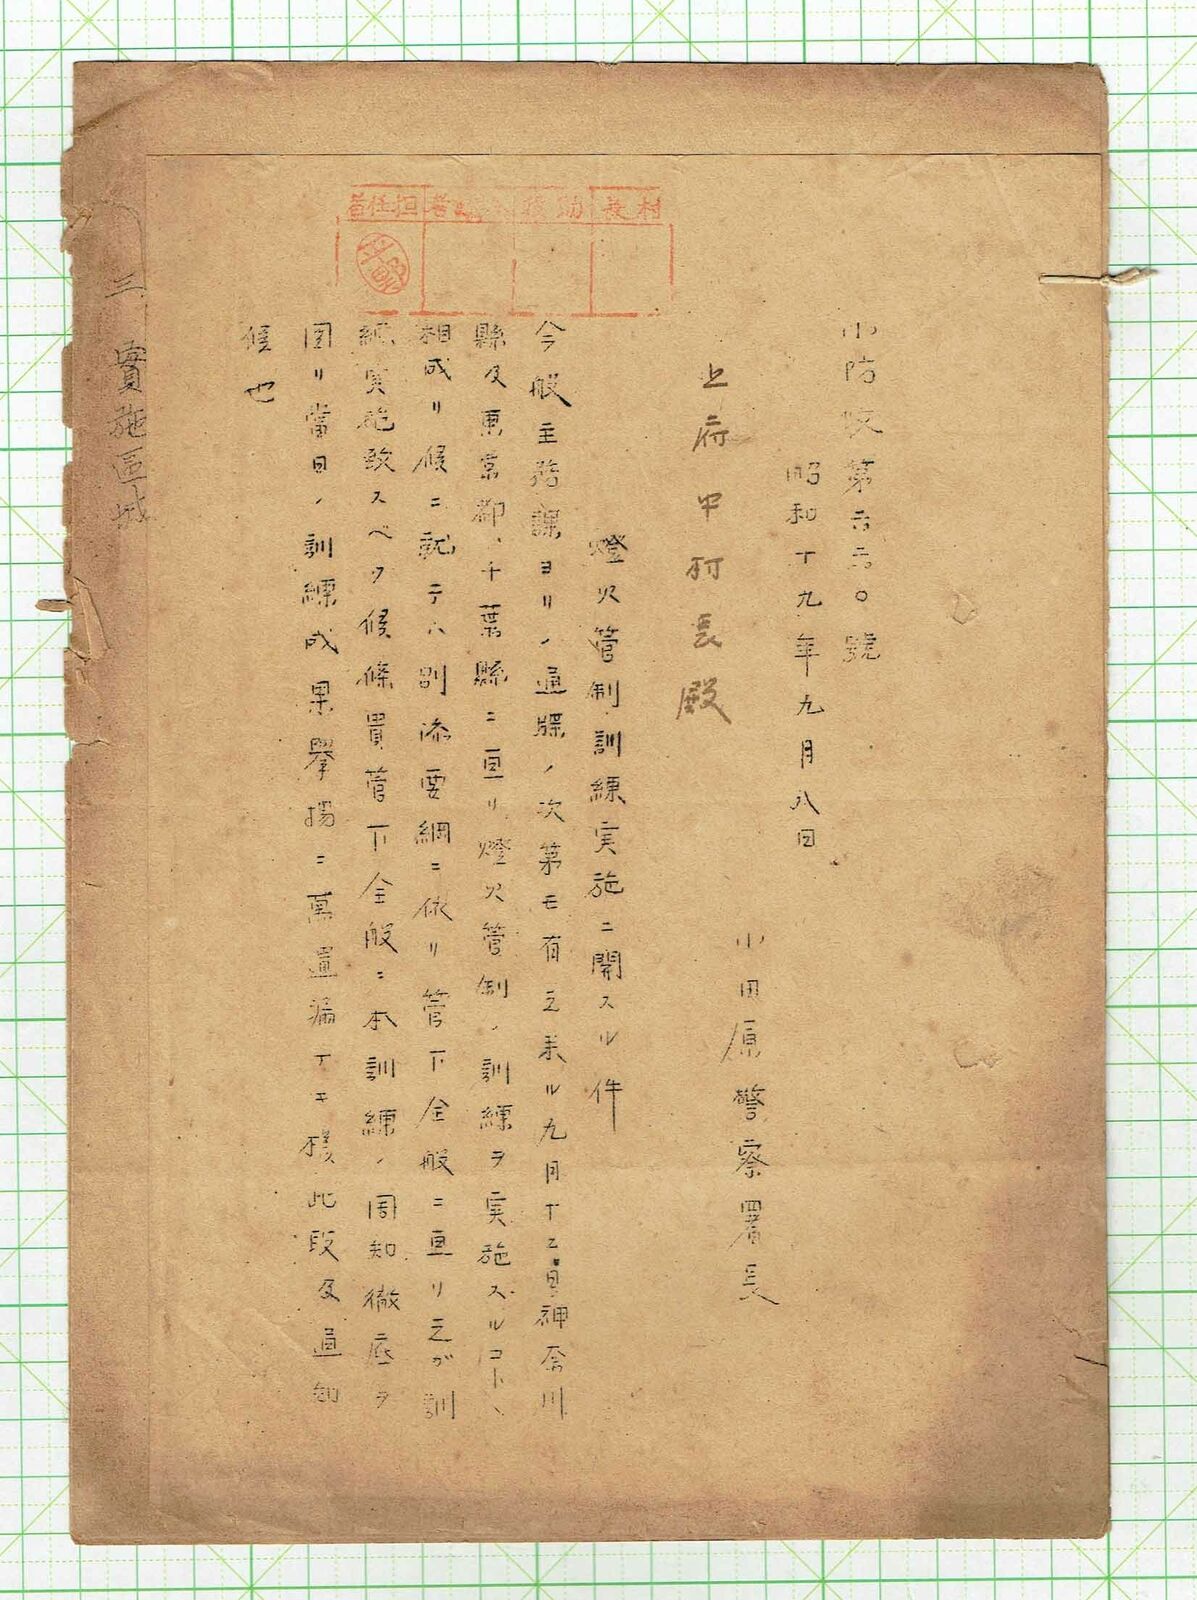 小防收第六六〇號
昭和十九年九月八日
小田原警察署長
上府中村長殿
燈火管制訓練実施ニ関スル件
今般主務課ヨリノ通牒ノ次第モ有之来ル九月十二日神奈川
縣及東京都、千葉縣ニ亘リ燈火管制ノ訓練ヲ実施スルコトヽ
相成リ候ニ就テハ別添要綱ニ依リ管下全般ニ亘リ之ガ訓
練実施致スベク候條貴管下全般ニ本訓練ノ周知徹底ヲ
図リ當日ノ訓練成果擧揚ニ萬遺漏ナキ様此段及通知
候也
三 實施區域
村長 助役 担任者